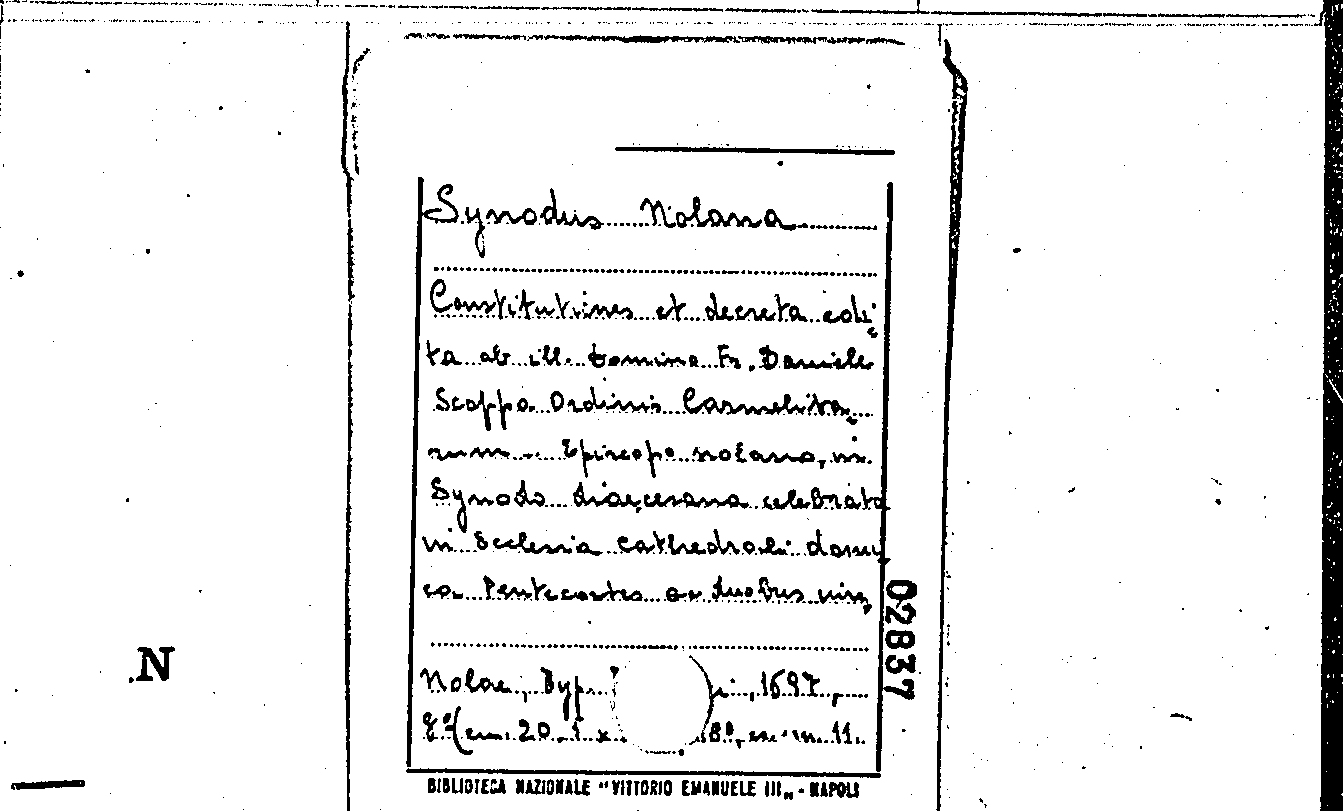 Synodus Nolana
Constitutines et decreta edi-
ta ab ill. domino Fr. Daniele
Scoppa Ordinis Carmelita-
rum Episcopo nolano, in
Synodo diocesana celebrata
in Ecclesia Cathedrali domy
ca Pentecostes ac duobus
Nolae, Typ. i, 1697,
8º (cm. 20,5 x 8º, 11.
BIBLIOTECA NAZIONALE "VITTORIO EMANUELE III„ - NAPOLI
02837
N